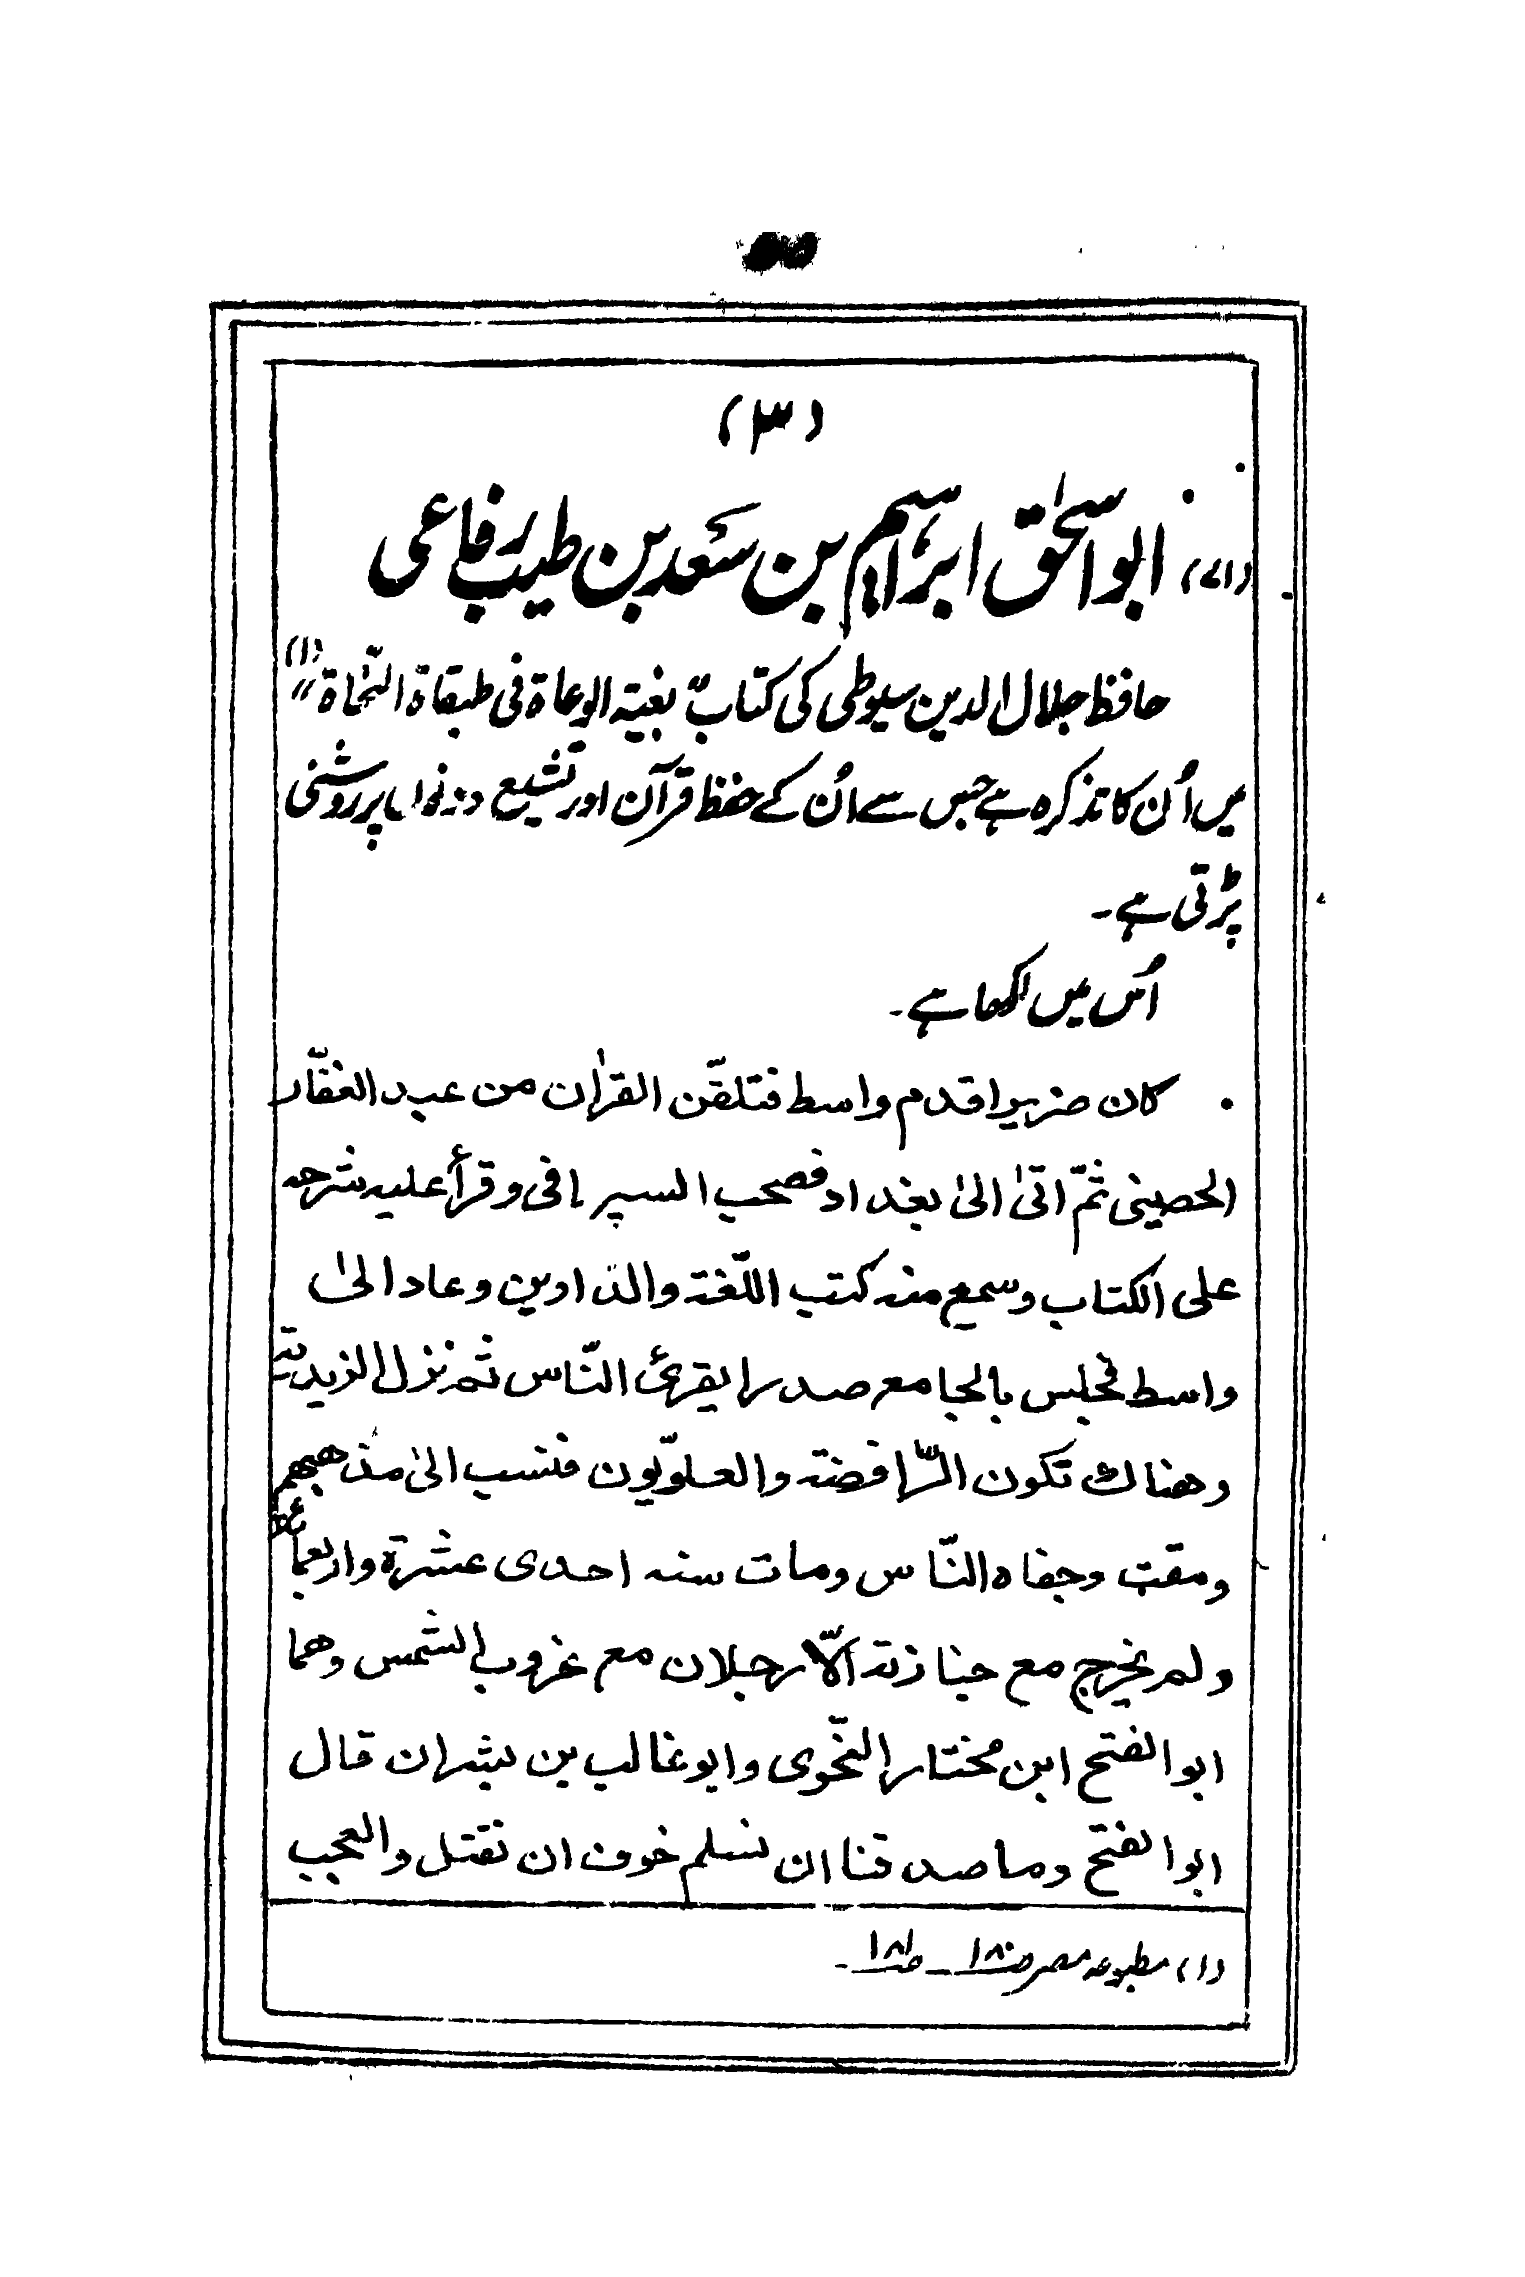 (۳)
(۱۷) ابو اسحٰق ابراہیم بن سعد بن طیب رفاعی
حافظ جلال الدین سیوطی کی کتاب "بغیۃ الوعاۃ فی طبقاۃ النّحاۃ" (۱)
میں اُن کا تذکرہ ہے جس سے اُن کے حفظ قرآن اور تشیع دونوں پر روشنی
پڑتی ہے۔
اُس میں لکھا ہے۔
کان ضریرا قدم واسط فتلقّن القراٰن من عبد الغفّار
الحصینی ثمّ اتیٰ الیٰ بغداد فصحب السیرافی وقرأ علیہ شرحہ
علی الکتاب وسمع منہ کتب اللّغة والدّاوین وعاد الیٰ
واسط فجلس بالجامع صدرا یقریٔ النّاس ثم نزل الزیدیة
وھناک تکون الرّافضة والعلویّون فنسب الیٰ مذھبھم
ومقت وجفاہ النّاس ومات سنہ احدی عشرة واربعمأة
ولم یخرج مع جنازتة الّا رجلان مع غروب الشمس وھما
ابو الفتح ابن مختار النّحوی وابو غالب بن بشران قال
ابو الفتح وما صدقنا ان نسلم خوف ان نقتل والعجب
(۱) مطبوعہ مصر صـ۱۸۰ ـ صـ۱۸۱۔